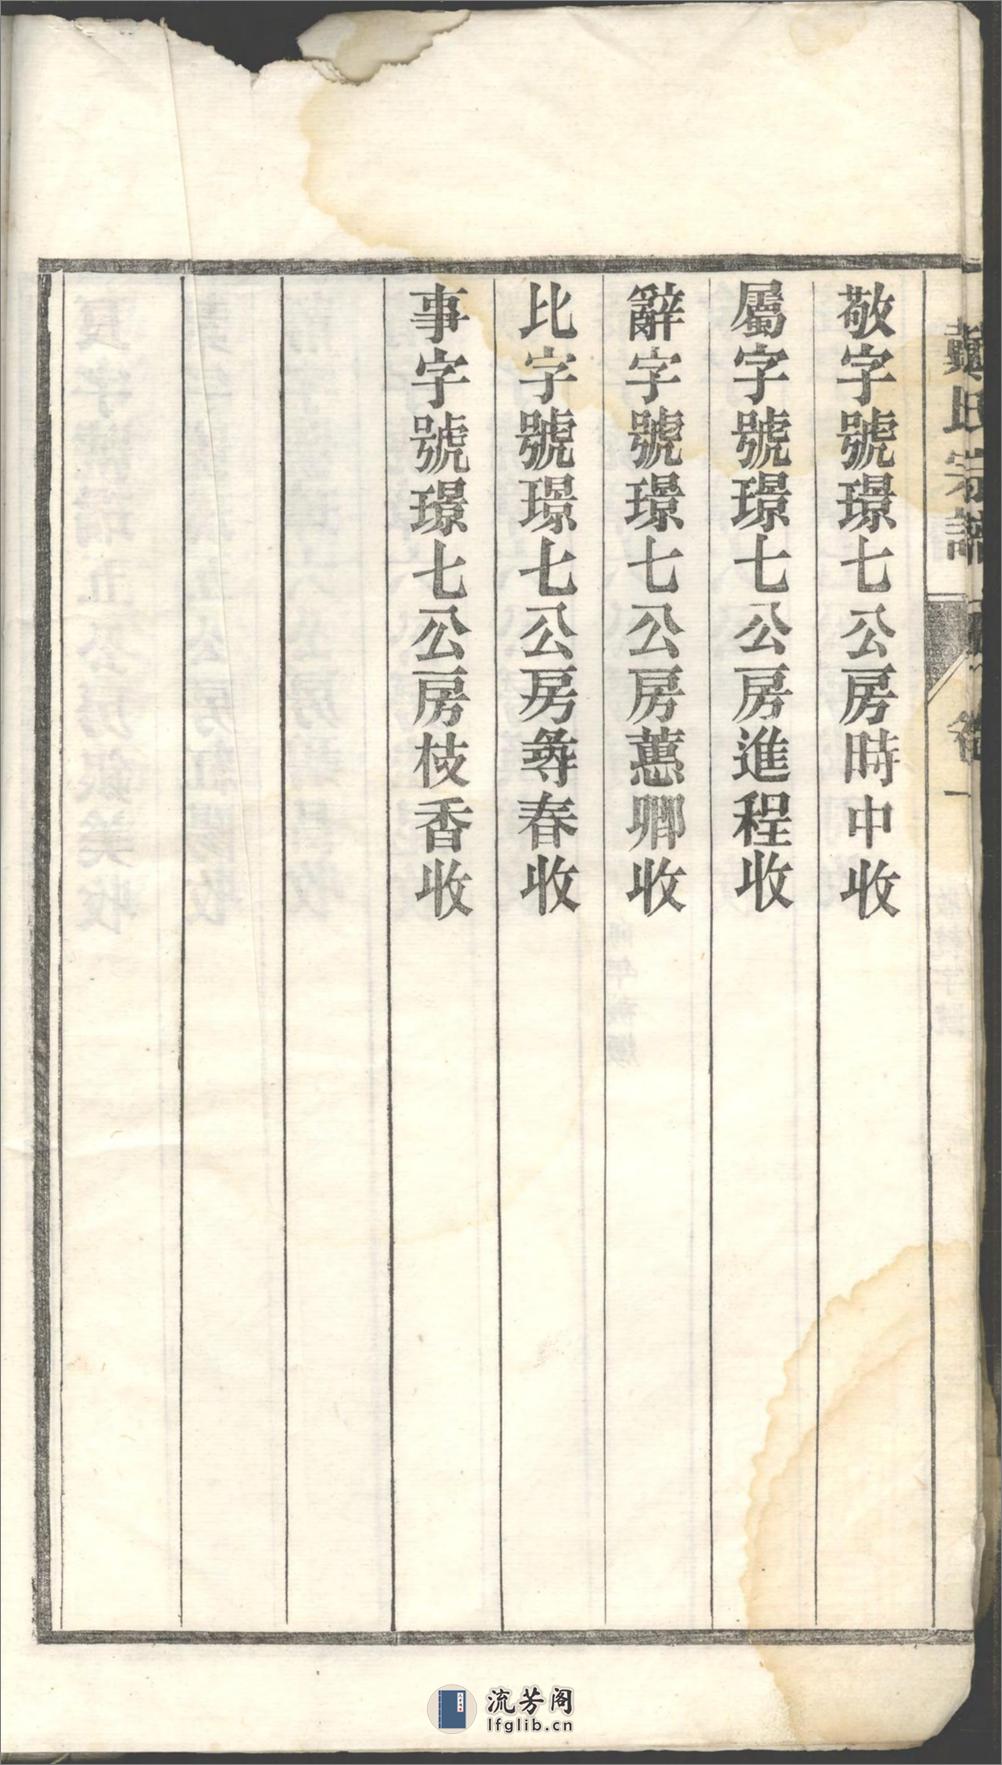 敬字號璟七公房時中收
屬字號璟七公房進程收
辭字號璟七公房蕙卿收
比字號璟七公房彝春收
事字號璟七公房枝香收
氏宗譜
卷一
流芳阁
lfglib.cn